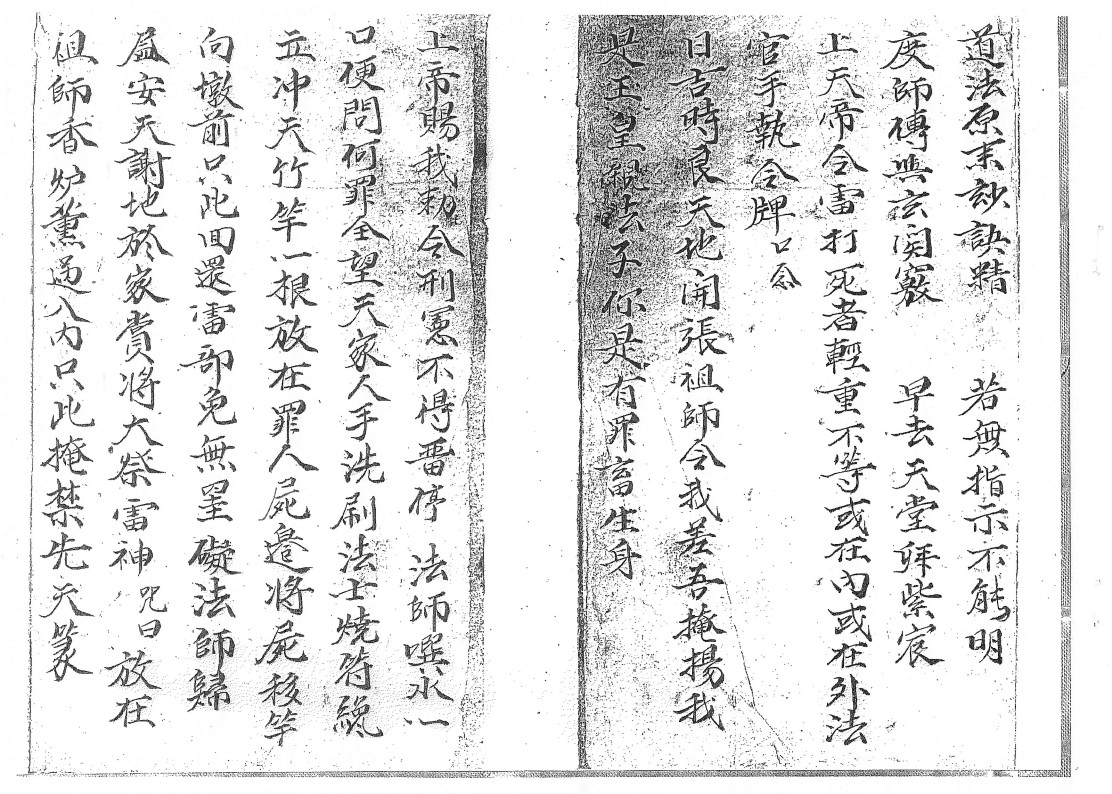 道法原来妙訣精　若無指示不能明
度師傳與玄関竅　早去天堂拜紫宸
上天帝令雷打死者輕重不等或在內或在外法
官手執令牌 口念
日吉時良天地開張祖師令我差吾掩揚我
是玉皇親法子你是有罪畜生身
上帝賜我勅令刑憲不得畱停 法師噀水一
口便問何罪全望天家人手洗刷法士燒符纔
立冲天竹竿一根放在罪人屍邊將屍移竿
向墩前只此回還雷部免無罣礙法師歸
安天謝地於家賞將大祭雷神 咒曰 放在
祖師香炉薰過入內只此掩禁先天篆